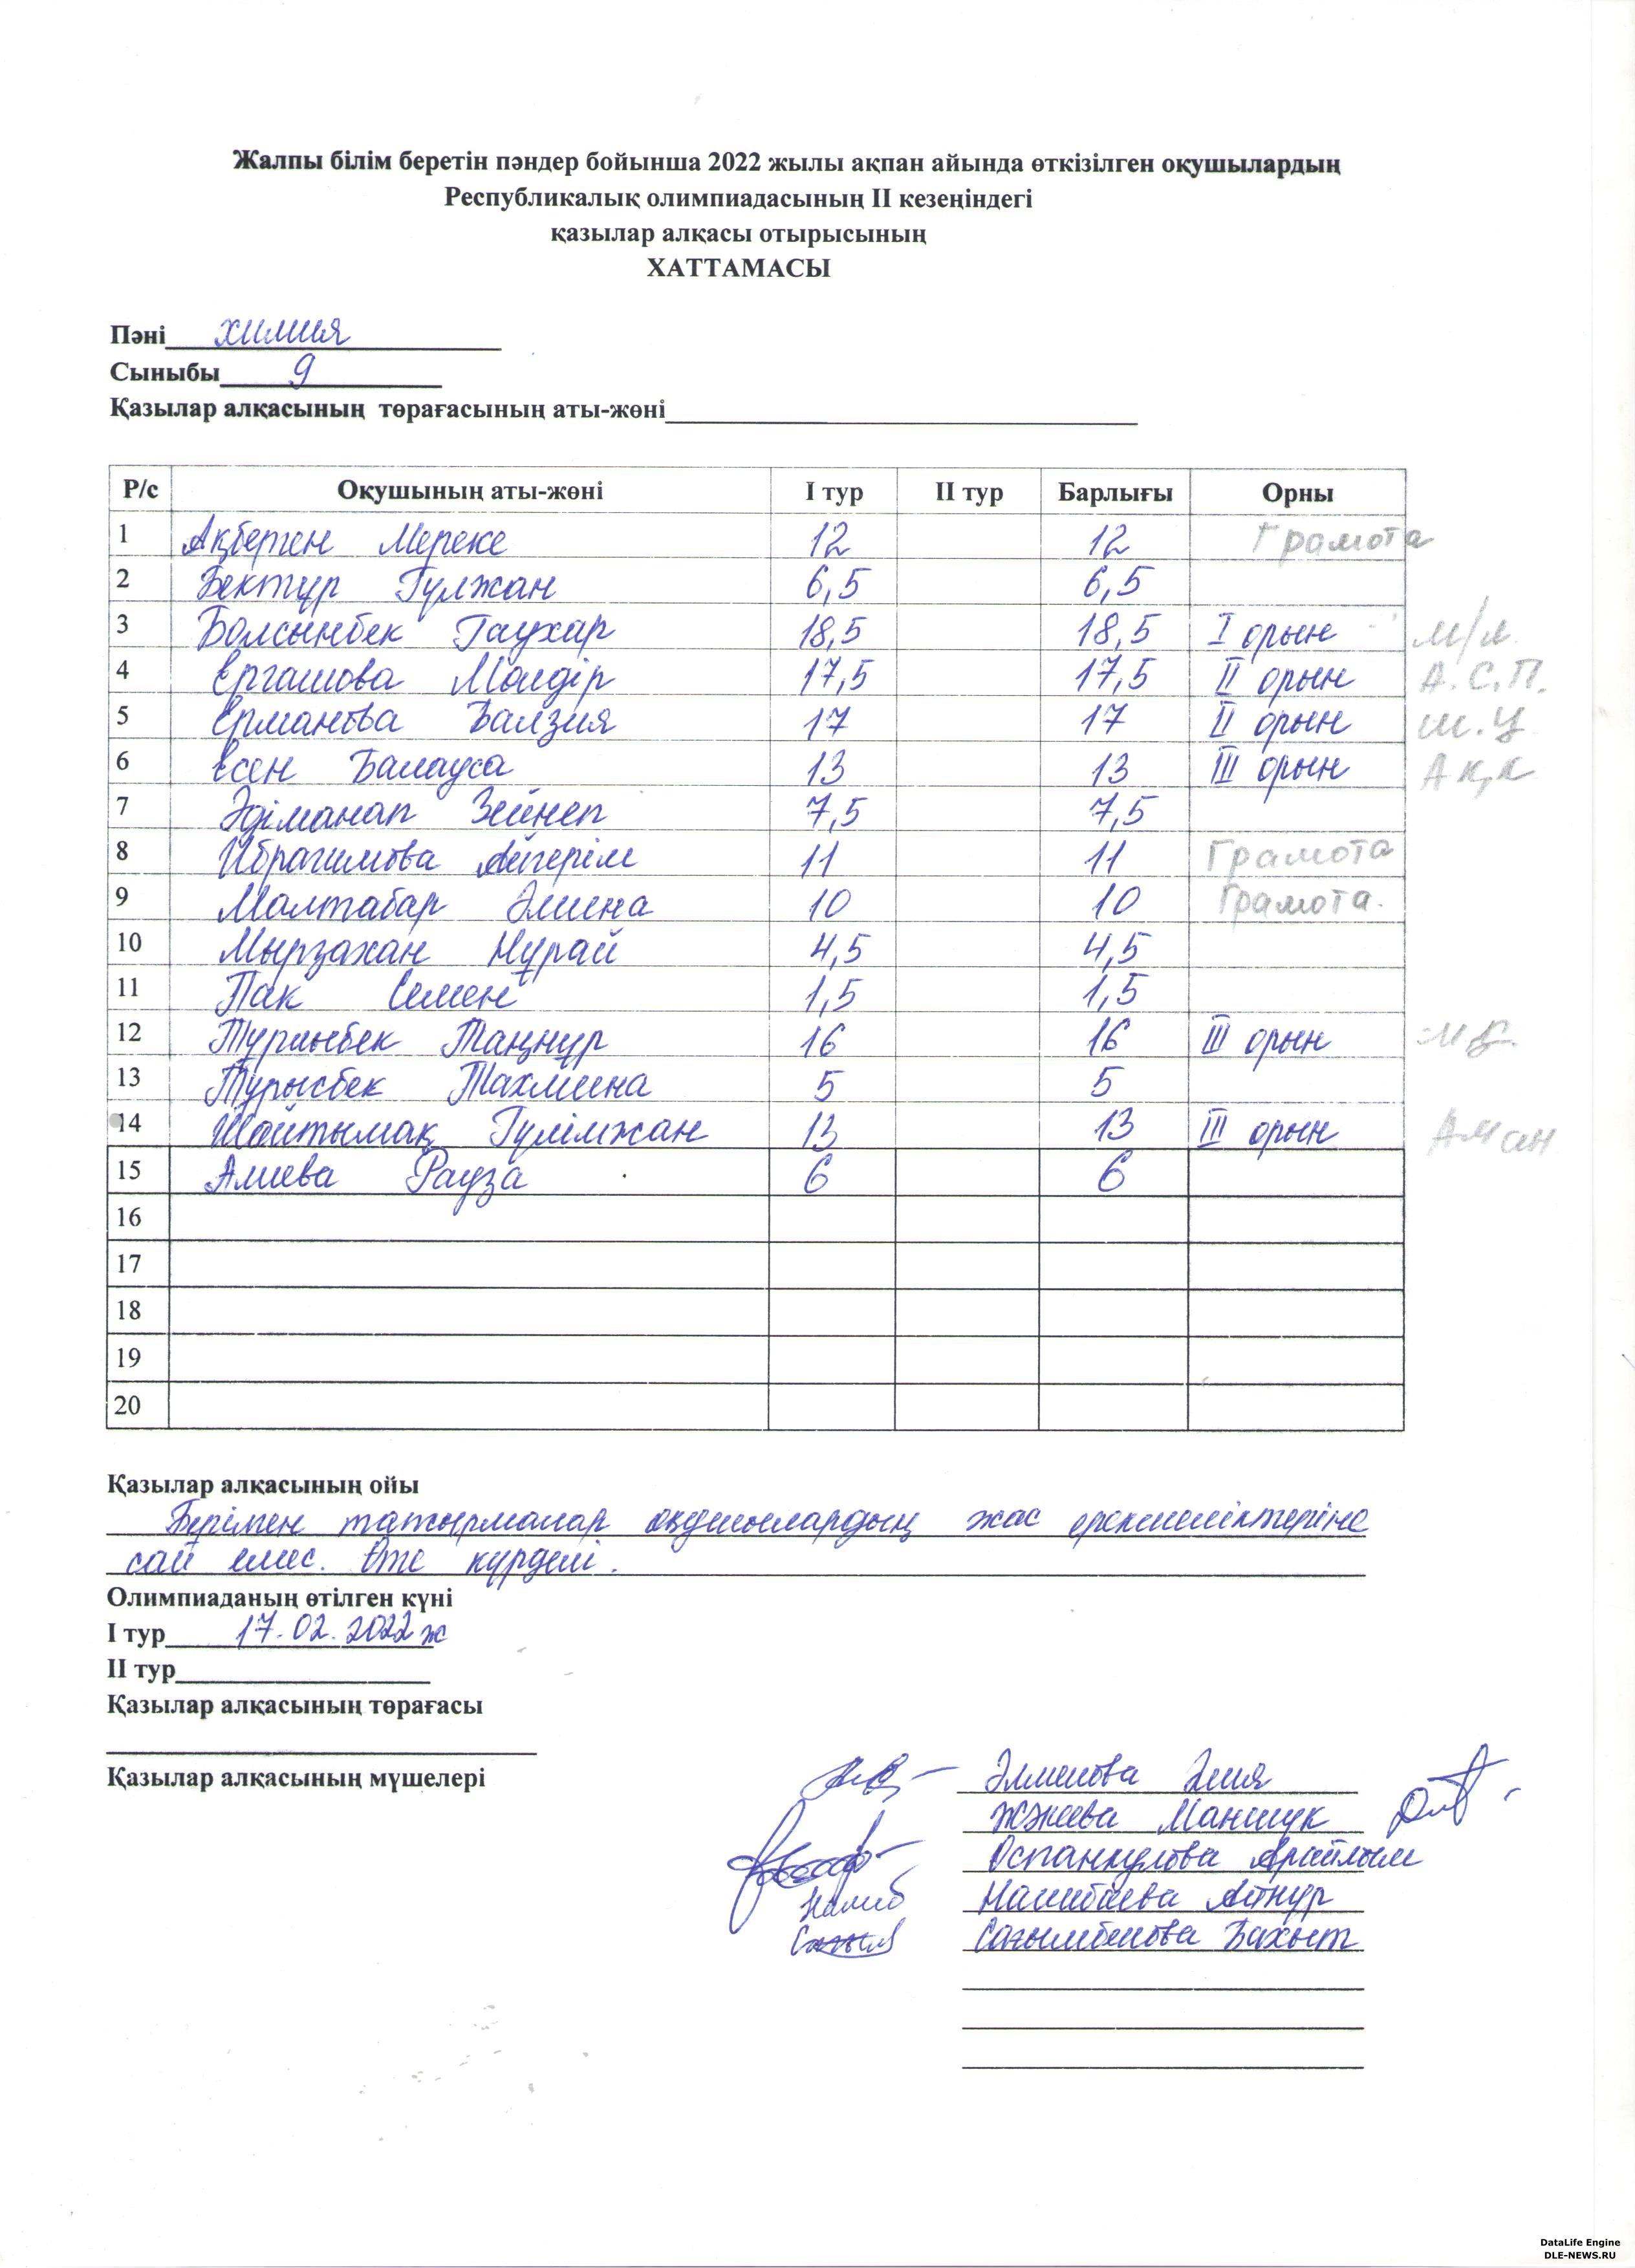 Жалпы білім беретін пәндер бойынша 2022 жылы ақпан айында өткізілген оқушылардың
Республикалық олимпиадасының II кезеңіндегі
қазылар алқасы отырысының
ХАТТАМАСЫ
Пәні химия
Сыныбы 9
Қазылар алқасының төрағасының аты-жөні
Р/с Оқушының аты-жөні I тур II тур Барлығы Орны
1 Ақберген Мереке 12 12 Грамота
2 Бектұр Гүлжан 6,5 6,5
3 Болсынбек Гаухар 18,5 18,5 I орын м/л
4 Ергашова Мөлдір 17,5 17,5 II орын А.С.П.
5 Ерманова Валзия 17 17 II орын ш.ц
6 Есен Балауса 13 13 III орын Ақ.к
7 Әдіманап Зейнеп 7,5 7,5
8 Ибрагимова Айгерім 11 11 Грамота
9 Малтабар Әмина 10 10 Грамота.
10 Мырзахан Нұрай 4,5 4,5
11 Пак Семен 1,5 1,5
12 Тұрлыбек Таңнұр 16 16 III орын
13 Тұрысбек Тахмина 5 5
14 Шойтымақ Гүлімжан 13 13 III орын Аман
15 Алиева Рауза 6 6
16
17
18
19
20
Қазылар алқасының ойы
Берілген тапсырмалар оқушылардың жас ерекшеліктеріне
сай емес. Өте күрделі.
Олимпиаданың өтілген күні
I тур 17.02.2022 ж
II тур
Қазылар алқасының төрағасы
Қазылар алқасының мүшелері
Әлменова Әлия
Маншук
Оспанкулова Арайлым
Нашбаева Айнур
Сағымбекова Бахыт
DataLife Engine
DLE-NEWS.RU